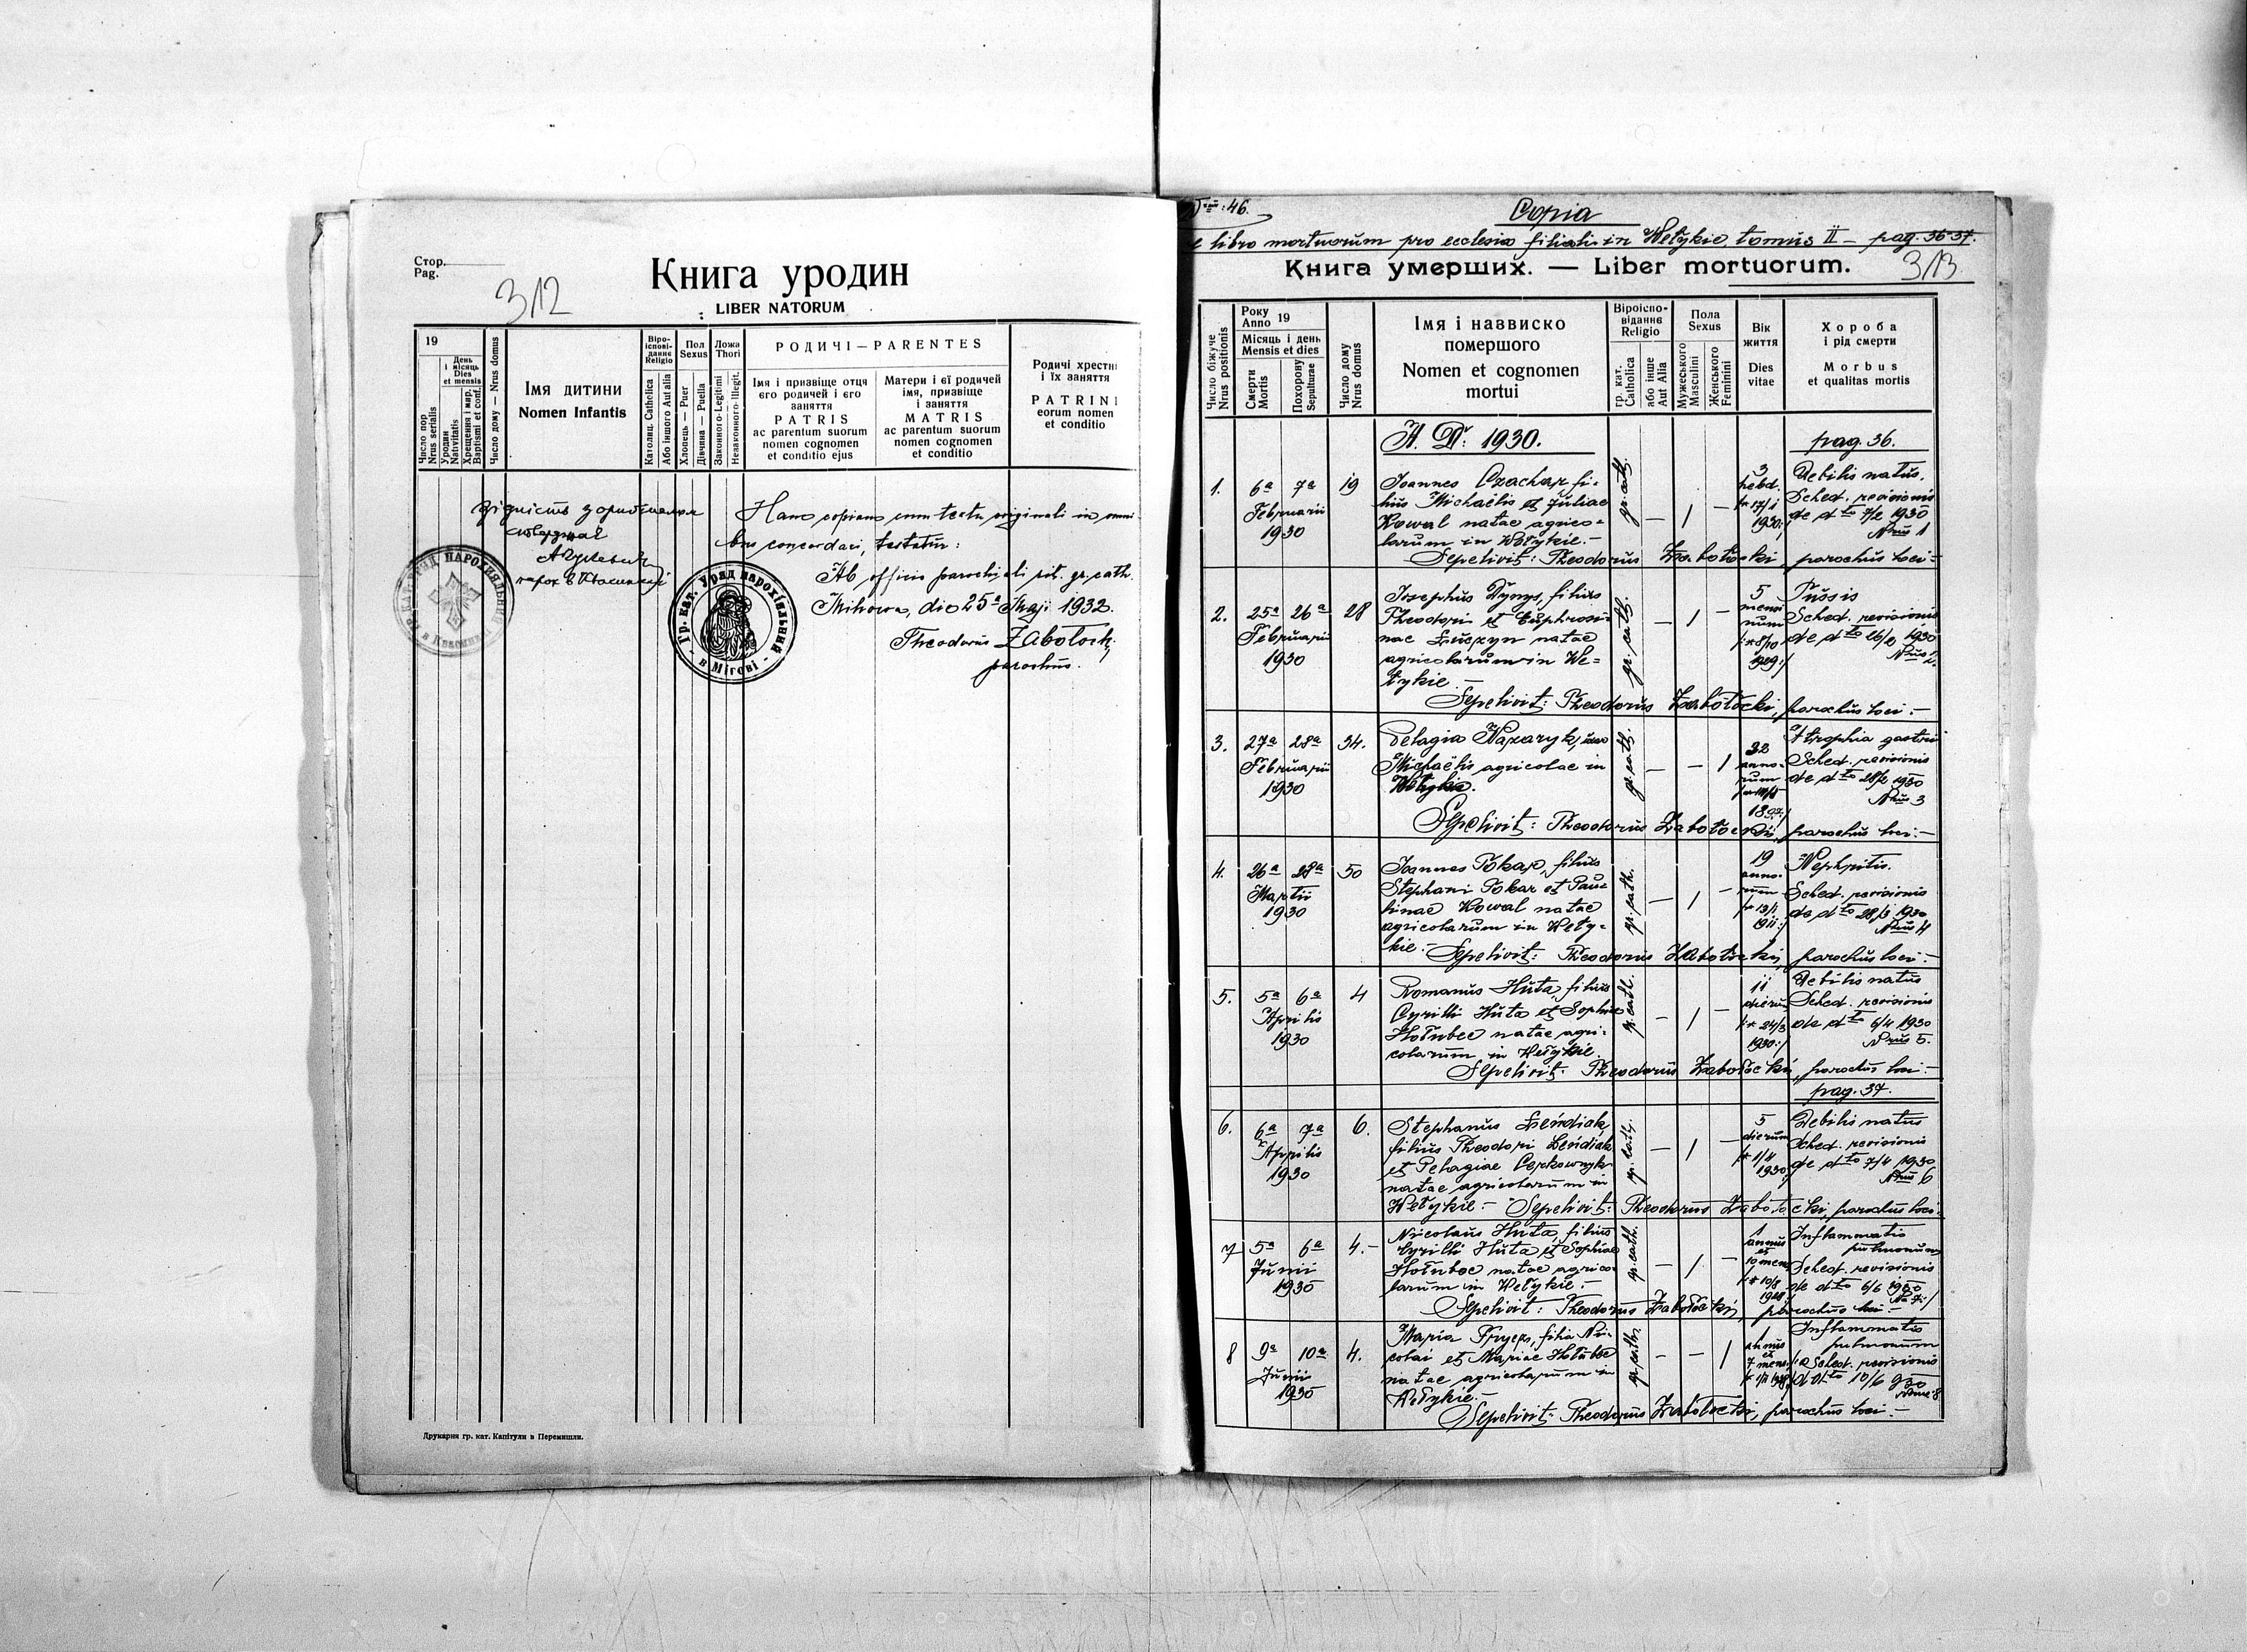 Стор.
Pag.
312
Книга уродин
LIBER NATORUM
19
Число пор
Nrus serialis
День
і місяць
Dies
et mensis
Уродин
Nativitatis
Хрещення і мир.
Baptismi et conf.
Число дому — Nrus domus
Імя дитини
Nomen Infantis
Віро-
іспові-
даннє
Religio
Католиц. Catholica
Або іншого Aut alia
Пол
Sexus
Хлопець — Puer
Дівчина — Puella
Ложа
Thori
Законного-Legitimi
Незаконного-Illegit.
РОДИЧІ — PARENTES
Імя і призвіще отця
єго родичей і єго
заняття
PATRIS
ac parentum suorum
nomen cognomen
et conditio ejus
Матери і єї родичей
імя, призвіще
і заняття
MATRIS
ac parentum suorum
nomen cognomen
et conditio
Родичі хрестні
і їх заняття
PATRINI
eorum nomen
et conditio
Згідність з оригіналом
стверджає
Hanc copiam cum textu originali in omni-
bus concordari, testatur:
Ab officio parochiali rit. gr. cath.
Mihowa, die 25ª Maji 1932.
Theodorus Zabołocki,
parochus.
Гр. кат. Уряд парохіяльний
в Мігові
Друкарня гр. кат. Капітули в Перемишли.
Nrus: 46.
Copia
e libro mortuorum pro ecclesia filiali in Wełykie, tomus II – pag. 36-37.
Книга умерших. — Liber mortuorum.
313
Число біжуче
Nrus positionis
Року
Anno 19
Місяць і день
Mensis et dies
Смерти
Mortis
Похорону
Sepulturae
Число дому
Nrus domus
Імя і назвиско
помершого
Nomen et cognomen
mortui
Віроіспо-
віданнє
Religio
гр. кат.
Catholica
або інше
Aut Alia
Пола
Sexus
Мужеського
Masculini
Женського
Feminini
Вік
життя
Dies
vitae
Хороба
і рід смерти
Morbus
et qualitas mortis
A. D: 1930.
pag. 36.
1. 6ª 7ª Februarii 1930 19
Joannes Czachar, fi-
lius Michaëlis et Juliae
Kowal natae agrico-
larum in Wełykie.-
gr. cath. — / —
3 hebd. /* 17/1 1930:/
Debilis natus.
Sched. revisionis
de dto 7/2 1930
Nrus 1
Sepelivit: Theodorus Zabołocki, parochus loci.-
2. 25ª 26ª Februarii 1930 28
Josephus Dynys, filius
Theodori et Euphrosi-
nae natae
agricolarum in We-
łykie.-
gr. cath. — / —
5 mensium /* 8/10 1929:/
Tussis
Sched. revisionis
de dto 26/2 1930
Nrus 2.
Sepelivit: Theodorus Zabołocki, parochus loci.-
3. 27ª 28ª Februarii 1930 34.
Pelagia Nazaryk, uxor
Michaëlis agricolae in
Wełykie.
gr. cath. — — /
32 annorum
Atrophia gastrii
Sched. revisionis
de dto 28/2 1930
Nrus 3
Sepelivit: Theodorus Zabołocki, parochus loci.-
4. 26ª 28ª Martii 1930 50
Joannes Tokar, filius
Stephani Tokar et Pau-
linae Kowal natae
agricolarum in Weły-
kie.-
gr. cath. — / —
19 annorum /* 13/1 1911:/
Nephritis.
Sched. revisionis
de dto 28/3 1930
Nrus 4
Sepelivit: Theodorus Zabołocki, parochus loci.-
5. 5ª 6ª Aprilis 1930 4
Romanus Huta, filius
Cyrilli Huta et Sophiae
Hołubec natae agri-
colarum in Wełykie.
gr. cath. — / —
11 dierum /* 24/3 1930:/
Debilis natus
Sched. revisionis
de dto 6/4 1930
Nrus 5.
Sepelivit: Theodorus Zabołocki, parochus loci.-
pag. 37.
6. 6ª 7ª Aprilis 1930 6.
Stephanus Łeńdiak,
filius Theodori Łeńdiak
et Pelagiae Cerkownyk
natae agricolarum in
Wełykie.-
gr. cath. — / —
5 dierum /* 1/4 1930
Debilis natus
Sched. revisionis
de dto 7/4 1930
Nrus 6
Sepelivit: Theodorus Zabołocki, parochus loci.
7 5ª 6ª Junii 1930 4.-
Nicolaus Huta, filius
Cyrilli Huta et Sophiae
Hołubec natae agrico-
larum in Wełykie.-
gr. cath. — / —
1 annus et 10 mens. /* 10/8 1928:/
Inflammatio
pulmonum
Sched. revisionis
de dto 6/6 1930
No 7:/
Sepelivit: Theodorus Zabołocki, parochus loci.-
8 9ª 10ª Junii 1930 4.
Maria Fryers, filia Ni-
colai et Mariae Hołubec
natae agricolarum in
Wełykie.-
gr. cath. — — /
1 annus et 7 mens.
Inflammatio
pulmonum
Sched. revisionis
d dto 10/6 930
Nrus 8
Sepelivit: Theodorus Zabołocki, parochus loci.-